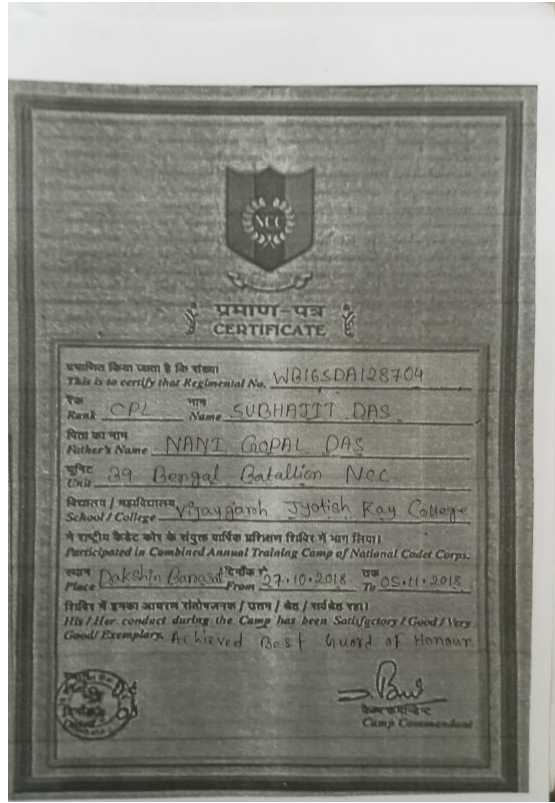 NCC
प्रमाण-पत्र
CERTIFICATE
प्रमाणित किया जाता है कि संख्या
This is to certify that Regimental No. WB16SDA128704
रैंक नाम
Rank CPL Name SUBHAJIT DAS
पिता का नाम
Father's Name NANI GOPAL DAS
यूनिट
Unit 39 Bengal Batallion Ncc
विद्यालय / महाविद्यालय
School / College Vijaygarh Jyotish Ray College
ने राष्ट्रीय कैडेट कोर के संयुक्त वार्षिक प्रशिक्षण शिविर में भाग लिया।
Participated in Combined Annual Training Camp of National Cadet Corps.
स्थान दिनाँक से तक
Place Dakshin Barasat From 27.10.2018 To 05.11.2018
शिविर में इनका आचरण संतोषजनक / उत्तम / श्रेठ / सर्वश्रेठ रहा।
His / Her conduct during the Camp has been Satisfactory / Good / Very
Good / Exemplary. Achieved Best Guard of Honour
कैम्प कमान्डेन्ट
Camp Commandant